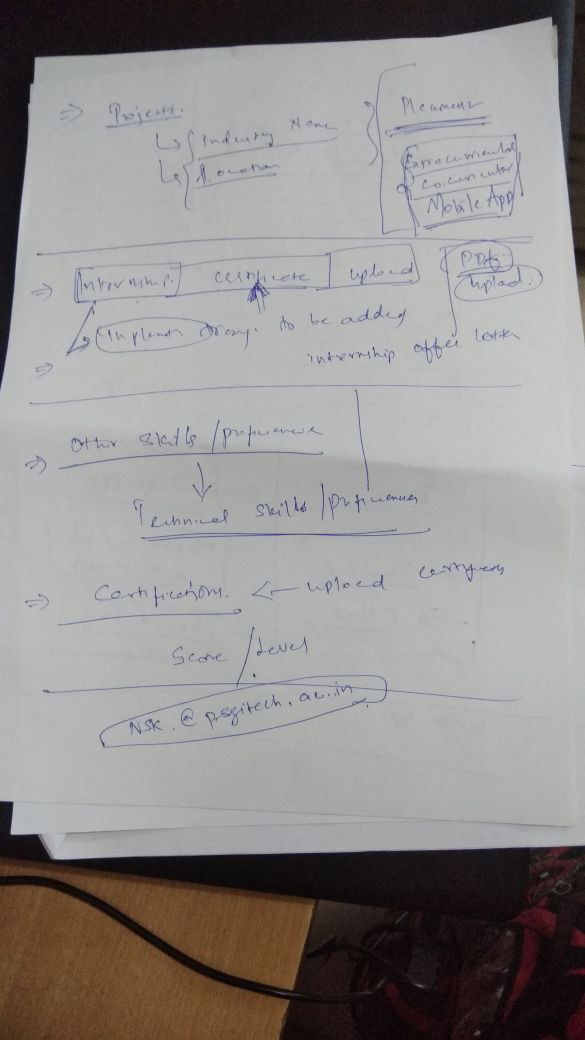 ⇒ Projects.
↳ Industry Name
↳ Location
Placement
Extracurricular
co.curricular
Mobile App
⇒ Internship. certificate upload
PDF.
upload.
⇒ Inplant to be added
internship offer letter
⇒ Other skills /
↓
Technical skills /
⇒ Certifications. ← upload
Score / Level
NSK.@psgitech.ac.in